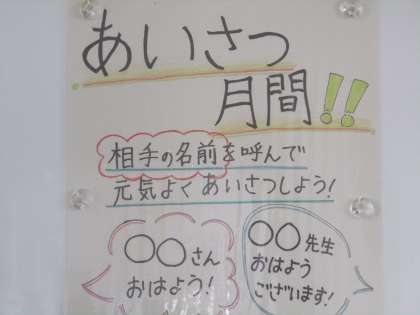 あいさつ
月間!!
相手の名前を呼んで
元気よくあいさつしよう!
〇〇さん
おはよう!
〇〇先生
おはよう
ございます!